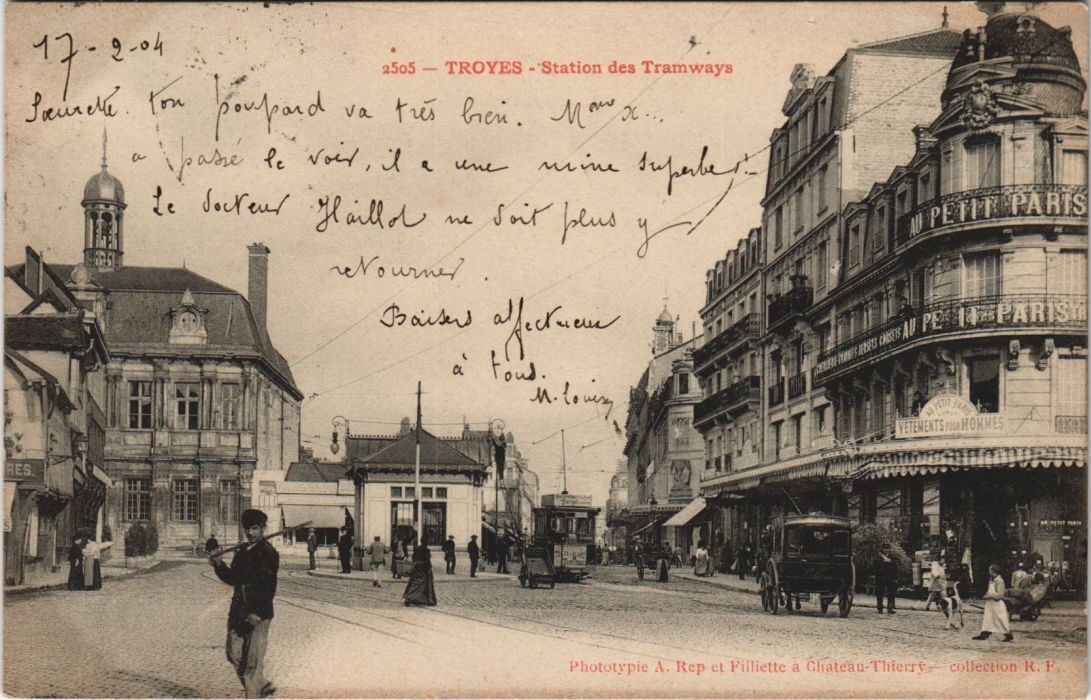 17-2-04
2505 — TROYES - Station des Tramways
Sœurette. ton poupard va très bien. Mme X...
a passé le voir, il a une mine superbe!
Le docteur Haillot ne doit plus y
retourner.
Baisers affectueux
à tous.
M. Louise
AU PETIT PARIS
AU PETIT PARIS
CHEMISERIE
AU PETIT PARIS
VÊTEMENTS POUR HOMMES
AU PETIT PARIS
Phototypie A. Rep et Filliette à Chateau-Thierry — collection R. F.